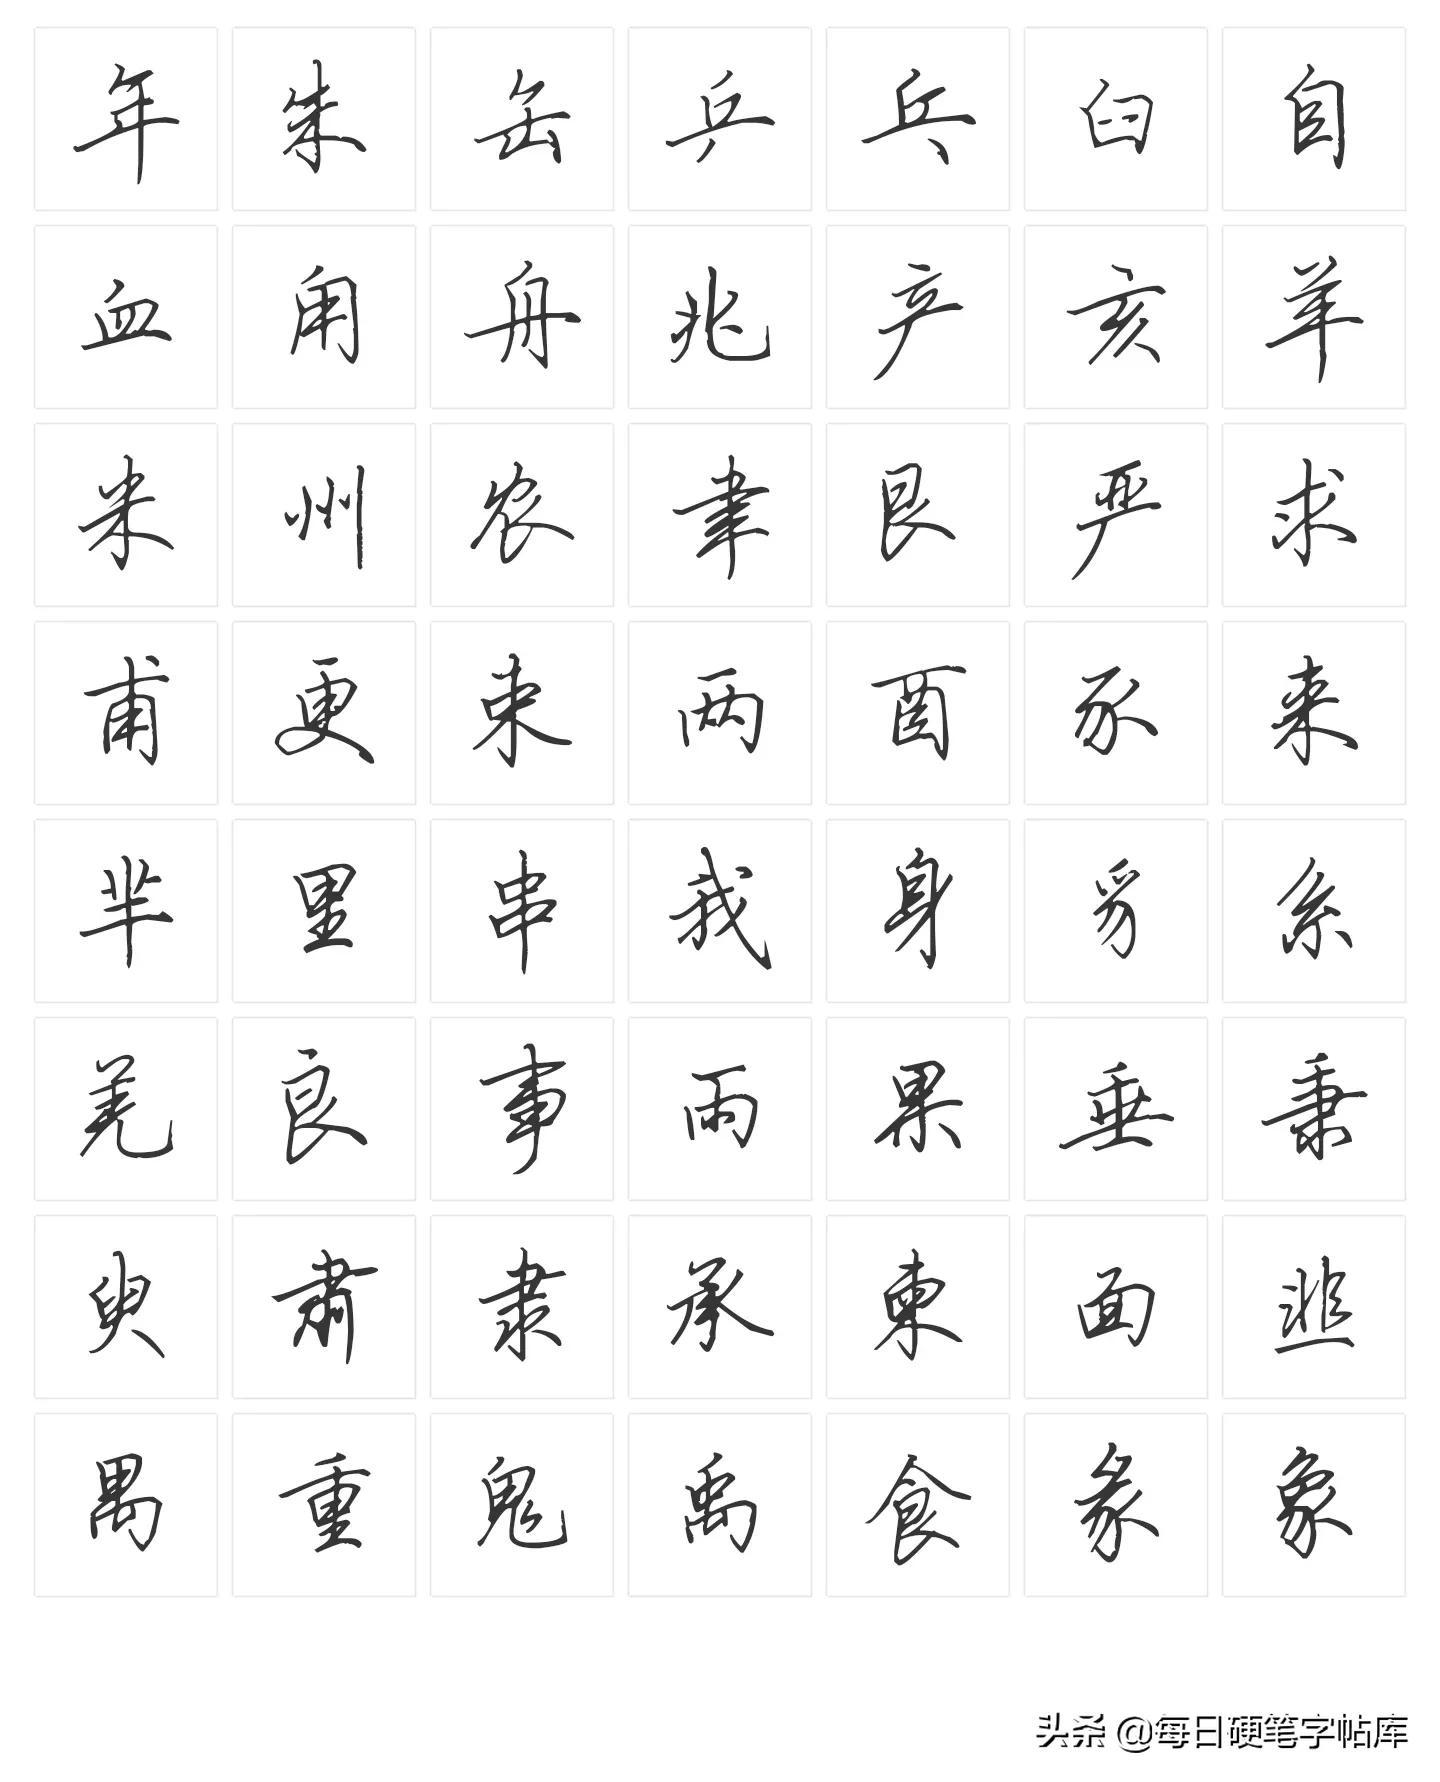 年 朱 缶 乒 乓 臼 自
血 甪 舟 兆 产 亥 羊
米 州 农 聿 艮 严 求
甫 更 束 两 酉 豕 来
芈 里 串 我 身 豸 系
羌 良 事 雨 果 垂 秉
臾 肃 隶 承 柬 面 韭
禺 重 鬼 禹 食 彖 象
头条 @每日硬笔字帖库